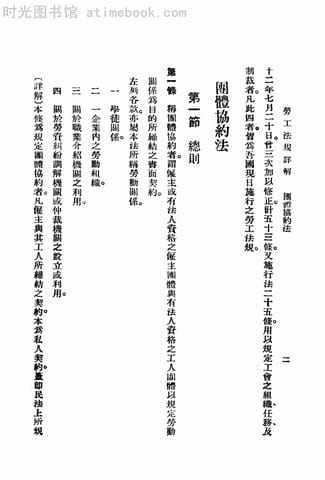 时光图书馆 - atimebook.com
勞工法規詳解　團體協約法
二
十二年七月二十日。曾三次加以修正。計五十三條。又施行法二十五條。用以規定工會之組織、任務、及
制裁者。凡此四者。皆爲吾國現日施行之勞工法規。
團體協約法
第一節　總則
第一條　稱團體協約者。謂僱主或有法人資格之僱主團體與有法人資格之工人團體。以規定勞動
關係爲目的所締結之書面契約。
左列各款。亦屬本法所稱勞動關係。
一　學徒關係。
二　一企業內之勞動組織。
三　關於職業介紹機關之利用。
四　關於勞資糾紛調解機關或仲裁機關之設立或利用。
〔詳解〕本條爲規定團體協約者。凡僱主與其工人所締結之契約。本爲私人契約。蓋卽民法上所規